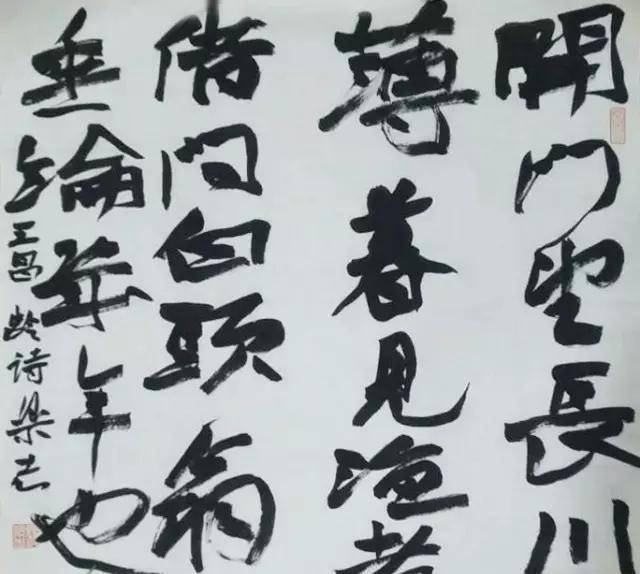 開門望長川
薄暮見渔者
借问白頭翁
垂綸幾年也
王昌龄诗梁志